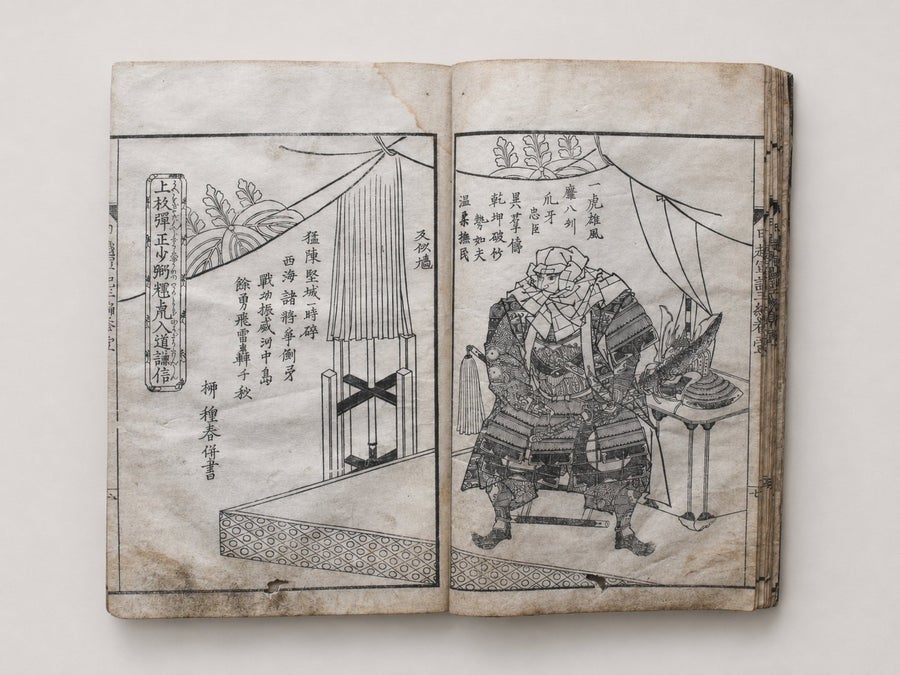 一虎雄風
靡八州
爪牙
忠臣
異草儔
乾坤破竹
勢如夫
温柔撫民
及似墻
猛陳堅城一時碎
西海諸將爭倒矛
戰功振威河中島
餘勇飛雷轟千秋
柳種春併書
上杦彈正少弼輝虎入道謙信